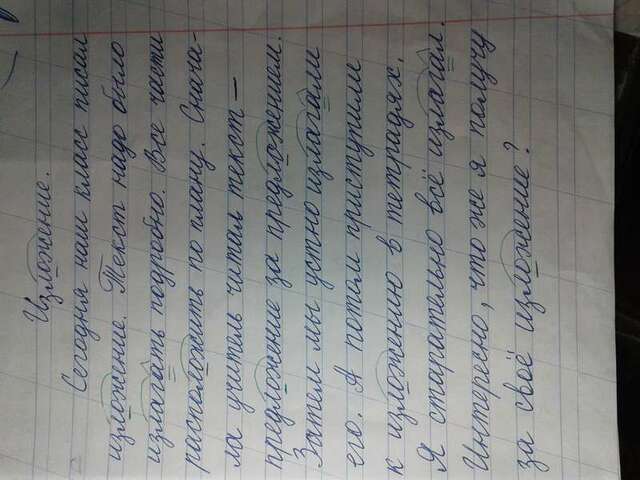 Изложение.
Сегодня наш класс писал
изложение. Текст надо было
излагать подробно. Все части
расположить по плану. Снача-
ла учитель читал текст -
предложение за предложением.
Затем мы устно излагали
его. А потом приступили
к изложению в тетрадях.
Я старательно всё излагал.
Интересно, что же я получу
за своё изложение?